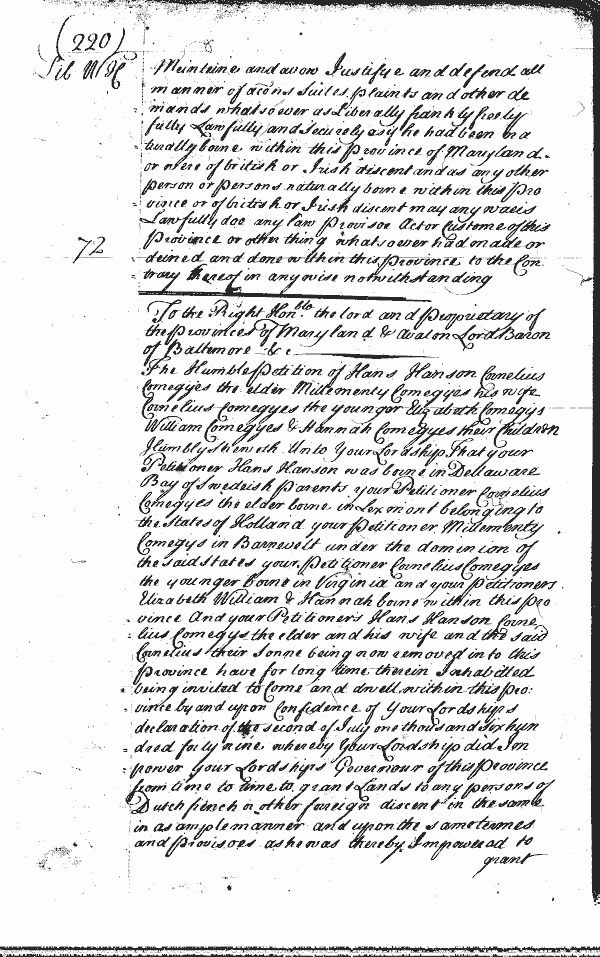 (220)
Lib WH
Mainteine and avow Justifye and defend all
manner of acõns Suites plaints and other de
mands whatsoever as Liberally frankly freely
fully Lawfully and Securely as if he had been na
turally borne within this Province of Maryland
or were of british or Irish discent and as any other
person or persons naturally borne within this Pro
vince or of british or Irish discent may any waeis
Lawfully doe any law Provisoe Act or Custome of this
72
Province or other thing whatsoever had made or
deined and done within this Province to the Con
trary thereof in anywise notwithstanding
To the Right Honble. the lord and Proprietary of
the Provinces of Maryland & Avalon Lord Baron
of Baltemore &c
The Humble Petition of Hans Hanson Cornelius
Comegyes the elder Millementy Comegyes his wife
Cornelius Comegyes the younger Elizabeth Comegys
William Comegyes & Hannah Comegyes their Children
Humbly sheweth Unto Your Lordship That your
Petitioner Hans Hanson was borne in Dellaware
Bay of Swedish Parents your Petitioner Cornelius
Comegyes the elder borne in Lexmont belonging to
the States of Holland your Petitioner Millementy
Comegys in Barnevelt under the dominion of
the said States your Petitioner Cornelius Comegyes
the younger borne in Virginia and your Petitioners
Elizabeth William & Hannah borne within this Pro
vince And your Petitioners Hans Hanson Corne
lius Comegys the elder and his wife and the said
Cornelius their Sonne being now removed in to this
Province have for long time therein Inhabitted
being invited to Come and dwell within this Pro:
vince by and upon Confidence of Your Lordships
declaration of the second of July one thousand Six hun
dred forty nine whereby Your Lordship did Im
power Your Lordships Governour of this Province
from time to time to grant Lands to any persons of
Dutch french or other foreign discent in the same
in as ample manner and upon the same termes
and Provisoes as he was thereby Impowered to
grant